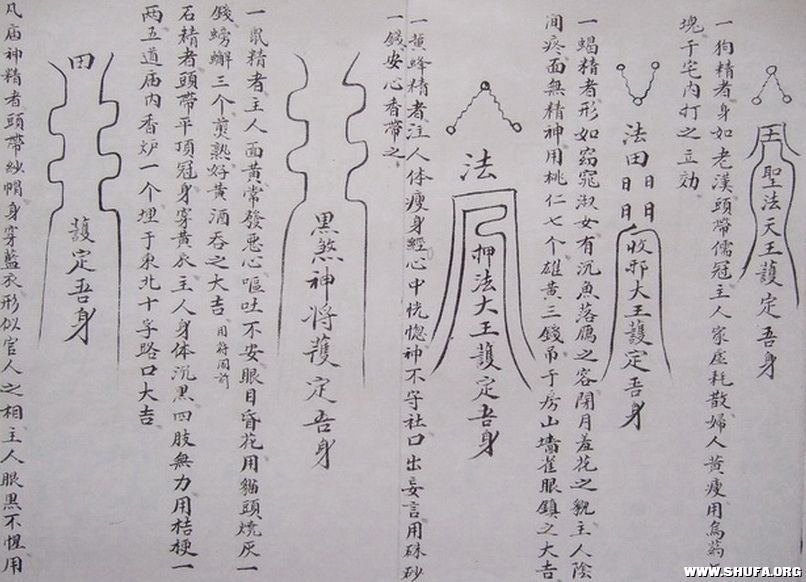 聖法天王護定吾身
一狗精者身如老漢頭帶儒冠主人家虛耗散婦人黄瘦用烏药一
塊于宅内打之立効
法田日日日日收邪大王護定吾身
一蝎精者形如窈窕淑女有沉魚落鴈之容閉月羞花之貌主人陰
间疼面無精神用桃仁七个雄黄三錢吊于房山墙雀眼鎮之大吉
法押法大王護定吾身
一蜂精者注人体瘦身經心中恍惚神不守社口出妄言用硃砂
一錢安心香帶之
黑煞神将護定吾身
一鼠精者主人面黄常發惡心嘔吐不安眼目昏花用貓頭燒灰一
錢螃蠏三个煎熟好黄酒吞之大吉用符同前
石精者頭帶平頂冠身穿黄衣主人身体沉黑四肢無力用桔梗一
两五道庙内香炉一个埋于東北十字路口大吉
田護定吾身
凡庙神精者頭帶紗帽身穿藍衣形似官人之相主人眼黑不惺用
WWW.SHUFA.ORG